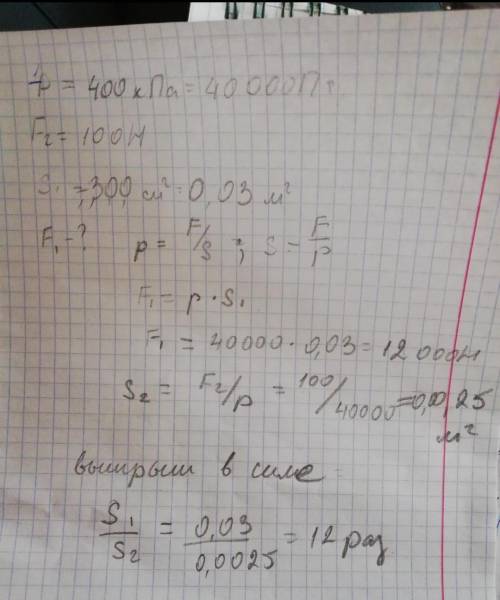 p = 400 кПа = 40 000 Па
F₂ = 100 Н
S₁ = 300 см² = 0,03 м²
F₁ - ? p = F/S ; S = F/p
F₁ = p · S₁
F₁ = 40000 · 0,03 = 12 000 Н
S₂ = F₂/p = 100/40000 = 0,0025 м²
выигрыш в силе
S₁/S₂ = 0,03/0,0025 = 12 раз